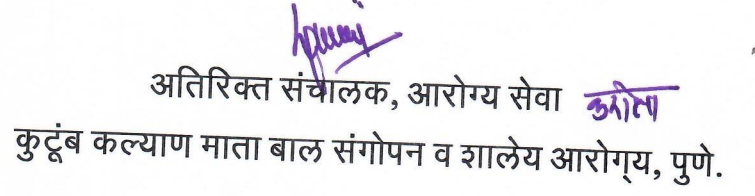 अतिरिक्त संचालक, आरोग्य सेवा करीता
कुटूंब कल्याण माता बाल संगोपन व शालेय आरोग्य, पुणे.